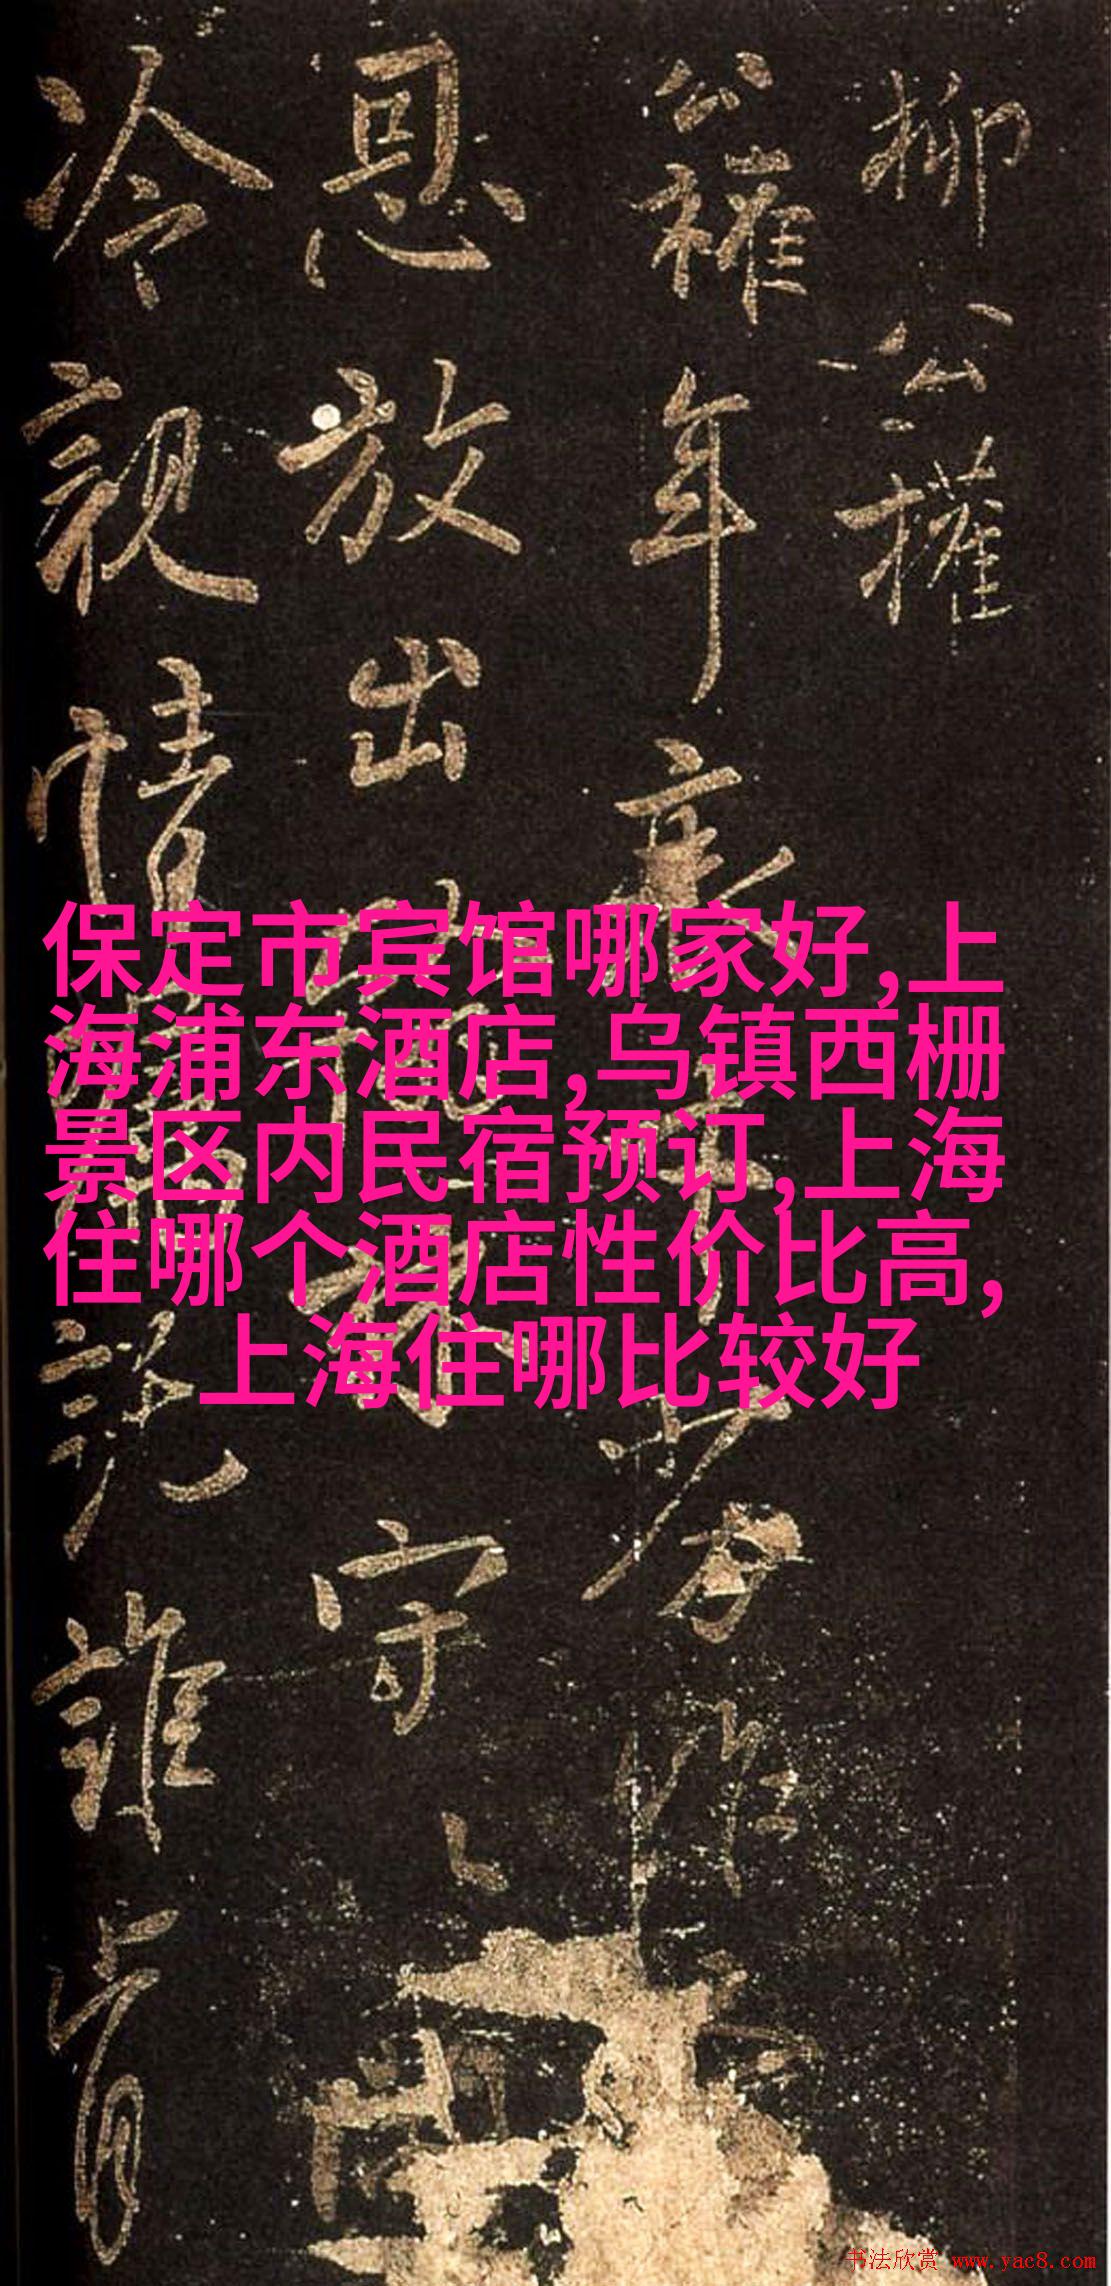 柳公權
公權年衰才劣昨
恩放出翰林守
冷親情囑託誰肯
保定市宾馆哪家好,上
海浦东酒店,乌镇西栅
景区内民宿预订,上海
住哪个酒店性价比高,
上海住哪比较好
书法欣赏 www.yac8.com